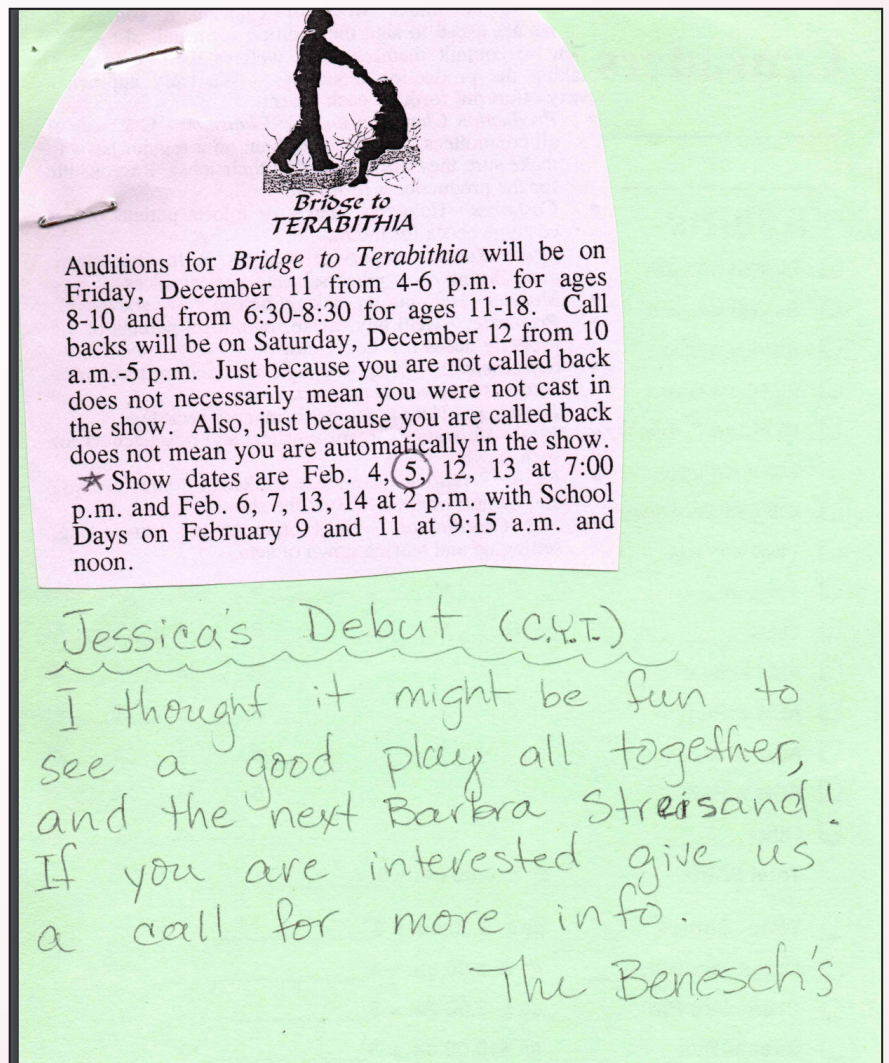 Bridge to
TERABITHIA
Auditions for Bridge to Terabithia will be on
Friday, December 11 from 4-6 p.m. for ages
8-10 and from 6:30-8:30 for ages 11-18. Call
backs will be on Saturday, December 12 from 10
a.m.-5 p.m. Just because you are not called back
does not necessarily mean you were not cast in
the show. Also, just because you are called back
does not mean you are automatically in the show.
Show dates are Feb. 4, 5, 12, 13 at 7:00
p.m. and Feb. 6, 7, 13, 14 at 2 p.m. with School
Days on February 9 and 11 at 9:15 a.m. and
noon.
Jessica's Debut (C.Y.T.)
I thought it might be fun to
see a good play all together,
and the next Barbra Streisand!
If you are interested give us
a call for more info.
The Benesch's